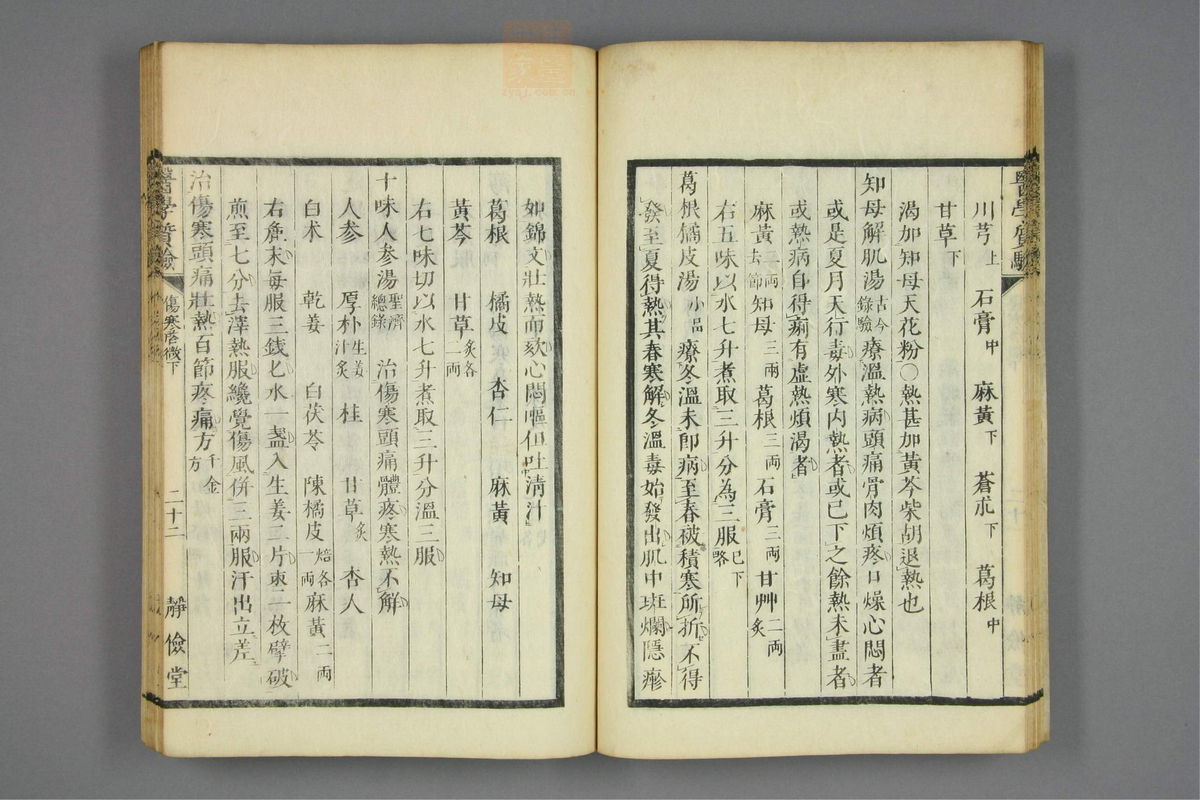 川芎上 石膏中 麻黃下 蒼朮下 葛根中
甘草下
渴加知母天花粉〇熱甚加黃芩柴胡退熱也
知母解肌湯古今錄驗療溫熱病頭痛骨肉煩疼口燥心悶者
或是夏月天行毒外寒內熱者或已下之餘熱未盡者
或熱病自得痢有虛熱煩渴者
麻黃二両去節知母三両葛根三両石膏三両甘艸二両炙
右五味以水七升煮取三升分為三服已下略
葛根橘皮湯小品療冬溫未即病至春被積寒所折不得
發至夏得熱其春寒解冬溫毒始發出肌中斑爛隱疹
如錦文壯熱而欬心悶嘔但吐清汁
葛根 橘皮 杏仁 麻黃 知母
黃芩 甘草炙各二両
右七味切以水七升煮取三升分溫三服
十味人參湯聖濟總錄 治傷寒頭痛體疼寒熱不解
人參 厚朴生姜汁炙 桂 甘草炙 杏人
白朮 乾姜 白茯苓 陳橘皮焙各一両麻黃二両
右麁末每服三錢匕水一盞入生姜二片棗二枚擘破
煎至七分去滓熱服纔覺傷風併三両服汗出立差
治傷寒頭痛壯熱百節疼痛方千金方
醫學質驗 傷寒啓微下 二十二 靜儉堂